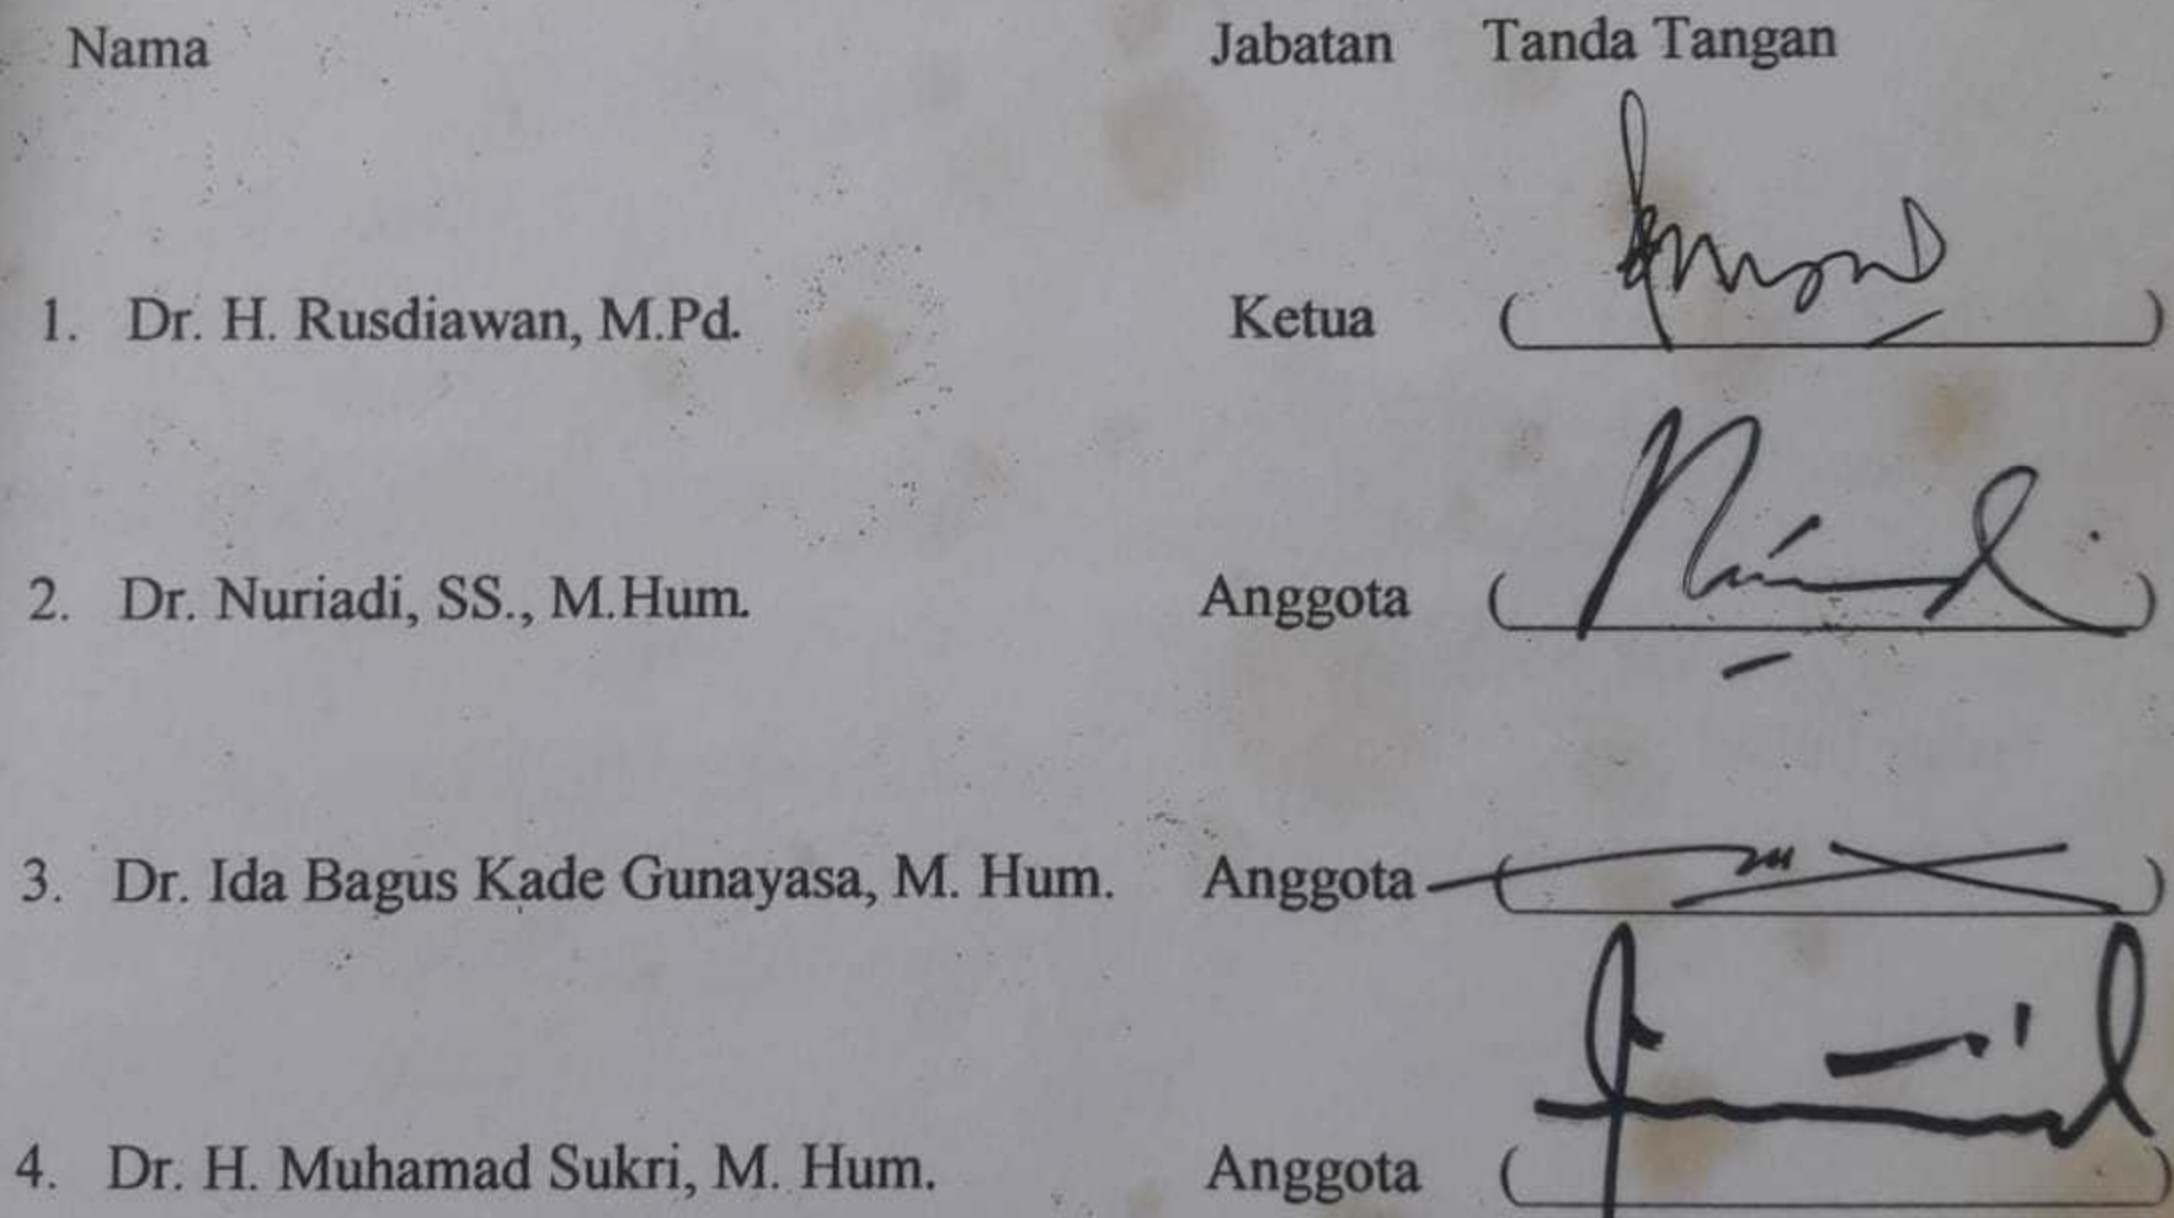 Nama Jabatan Tanda Tangan
1. Dr. H. Rusdiawan, M.Pd. Ketua ( )
2. Dr. Nuriadi, SS., M.Hum. Anggota ( )
3. Dr. Ida Bagus Kade Gunayasa, M. Hum. Anggota ( )
4. Dr. H. Muhamad Sukri, M. Hum. Anggota ( )